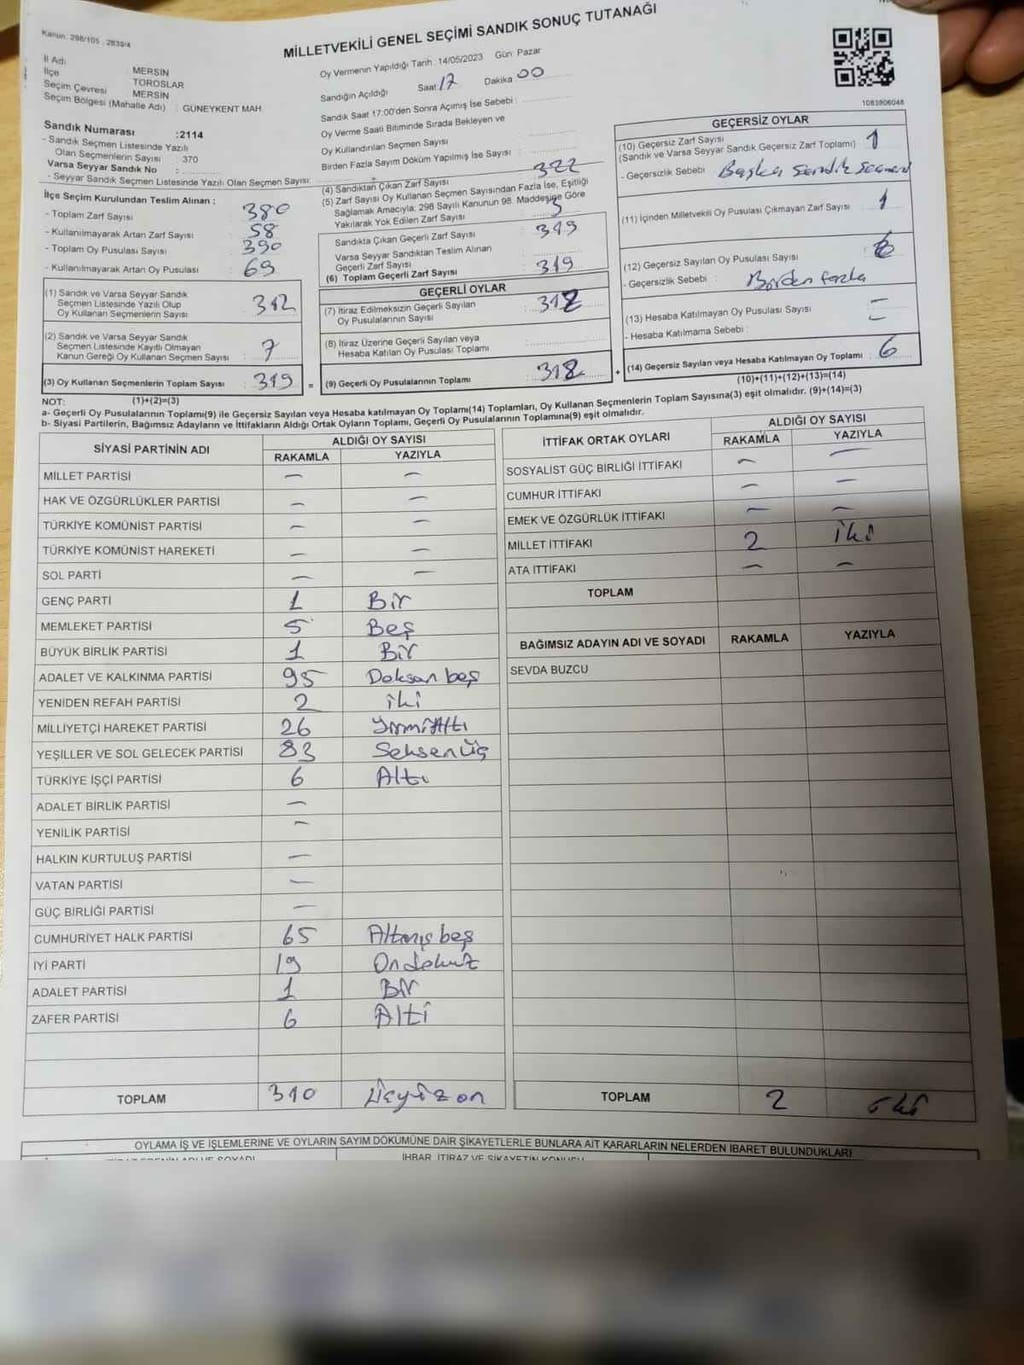 Kanun: 298/105 - 2839/4
MİLLETVEKİLİ GENEL SEÇİMİ SANDIK SONUÇ TUTANAĞI
İl Adı
İlçe
Seçim Çevresi
Seçim Bölgesi (Mahalle Adı) :
MERSİN
TOROSLAR
MERSİN
GÜNEYKENT MAH.
Sandık Numarası :2114
- Sandık Seçmen Listesinde Yazılı
Olan Seçmenlerin Sayısı : 370
Varsa Seyyar Sandık No :
- Seyyar Sandık Seçmen Listesinde Yazılı Olan Seçmen Sayısı :
İlçe Seçim Kurulundan Teslim Alınan :
- Toplam Zarf Sayısı : 380
- Kullanılmayarak Artan Zarf Sayısı : 58
- Toplam Oy Pusulası Sayısı : 390
- Kullanılmayarak Artan Oy Pusulası : 69
(1) Sandık ve Varsa Seyyar Sandık
Seçmen Listesinde Yazılı Olup
Oy Kullanan Seçmenlerin Sayısı : 312
(2) Sandık ve Varsa Seyyar Sandık
Seçmen Listesinde Kayıtlı Olmayan
Kanun Gereği Oy Kullanan Seçmen Sayısı : 7
(3) Oy Kullanan Seçmenlerin Toplam Sayısı : 319
(1)+(2)=(3)
Oy Vermenin Yapıldığı Tarih : 14/05/2023 Gün: Pazar
Sandığın Açıldığı Saat: 17 Dakika 00
Sandık Saat 17:00'den Sonra Açımış İse Sebebi :
Oy Verme Saati Bitiminde Sırada Bekleyen ve
Oy Kullandırılan Seçmen Sayısı
Birden Fazla Sayım Döküm Yapılmış İse Sayısı :
(4) Sandıktan Çıkan Zarf Sayısı : 322
(5) Zarf Sayısı Oy Kullanan Seçmen Sayısından Fazla İse, Eşitliği
Sağlamak Amacıyla; 298 Sayılı Kanunun 98. Maddesine Göre
Yakılarak Yok Edilen Zarf Sayısı : 3
Sandıkta Çıkan Geçerli Zarf Sayısı : 319
Varsa Seyyar Sandıktan Teslim Alınan
Geçerli Zarf Sayısı
(6) Toplam Geçerli Zarf Sayısı : 319
GEÇERLİ OYLAR
(7) İtiraz Edilmeksizin Geçerli Sayılan
Oy Pusulalarının Sayısı : 312
(8) İtiraz Üzerine Geçerli Sayılan veya
Hesaba Katılan Oy Pusulası Toplamı :
= (9) Geçerli Oy Pusulalarının Toplamı : 312
1083906048
GEÇERSİZ OYLAR
(10) Geçersiz Zarf Sayısı
(Sandık ve Varsa Seyyar Sandık Geçersiz Zarf Toplamı) : 1
- Geçersizlik Sebebi : Başka sandık seçmeni
(11) İçinden Milletvekili Oy Pusulası Çıkmayan Zarf Sayısı : 1
(12) Geçersiz Sayılan Oy Pusulası Sayısı : 6
- Geçersizlik Sebebi : Birden fazla
(13) Hesaba Katılmayan Oy Pusulası Sayısı : —
- Hesaba Katılmama Sebebi : —
+ (14) Geçersiz Sayılan veya Hesaba Katılmayan Oy Toplamı : 6
(10)+(11)+(12)+(13)=(14)
NOT:
a- Geçerli Oy Pusulalarının Toplamı(9) ile Geçersiz Sayılan veya Hesaba katılmayan Oy Toplamı(14) Toplamları, Oy Kullanan Seçmenlerin Toplam Sayısına(3) eşit olmalıdır. (9)+(14)=(3)
b- Siyasi Partilerin, Bağımsız Adayların ve İttifakların Aldığı Ortak Oyların Toplamı, Geçerli Oy Pusulalarının Toplamına(9) eşit olmalıdır.
SİYASİ PARTİNİN ADI ALDIĞI OY SAYISI
RAKAMLA YAZIYLA
MİLLET PARTİSİ — —
HAK VE ÖZGÜRLÜKLER PARTİSİ — —
TÜRKİYE KOMÜNİST PARTİSİ — —
TÜRKİYE KOMÜNİST HAREKETİ — —
SOL PARTİ — —
GENÇ PARTİ 1 Bir
MEMLEKET PARTİSİ 5 Beş
BÜYÜK BİRLİK PARTİSİ 1 Bir
ADALET VE KALKINMA PARTİSİ 95 Doksan beş
YENİDEN REFAH PARTİSİ 2 iki
MİLLİYETÇİ HAREKET PARTİSİ 26 YirmiAltı
YEŞİLLER VE SOL GELECEK PARTİSİ 83 Seksenüç
TÜRKİYE İŞÇİ PARTİSİ 6 Altı
ADALET BİRLİK PARTİSİ —
YENİLİK PARTİSİ —
HALKIN KURTULUŞ PARTİSİ —
VATAN PARTİSİ —
GÜÇ BİRLİĞİ PARTİSİ —
CUMHURİYET HALK PARTİSİ 65 Altmış beş
İYİ PARTİ 19 Ondokuz
ADALET PARTİSİ 1 Bir
ZAFER PARTİSİ 6 Altı
TOPLAM 310 Üçyüz on
İTTİFAK ORTAK OYLARI ALDIĞI OY SAYISI
RAKAMLA YAZIYLA
SOSYALİST GÜÇ BİRLİĞİ İTTİFAKI — —
CUMHUR İTTİFAKI — —
EMEK VE ÖZGÜRLÜK İTTİFAKI — —
MİLLET İTTİFAKI 2 iki
ATA İTTİFAKI — —
TOPLAM
BAĞIMSIZ ADAYIN ADI VE SOYADI RAKAMLA YAZIYLA
SEVDA BUZCU
TOPLAM 2 iki
OYLAMA İŞ VE İŞLEMLERİNE VE OYLARIN SAYIM DÖKÜMÜNE DAİR ŞİKAYETLERLE BUNLARA AİT KARARLARIN NELERDEN İBARET BULUNDUKLARI
İHBAR, İTİRAZ VE ŞİKAYETİN KONUSU